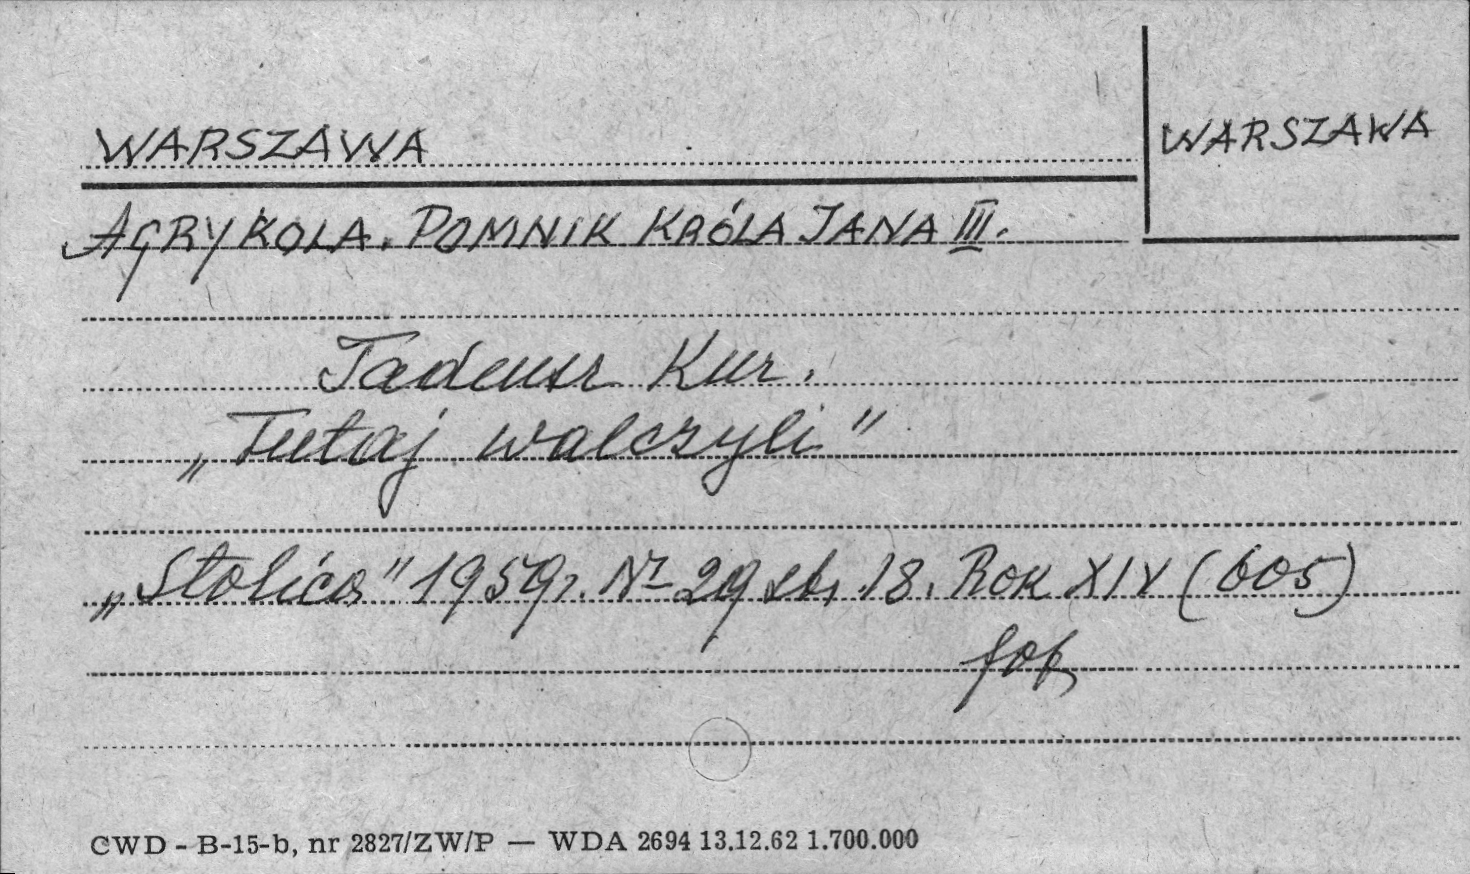 WARSZAWA
WARSZAWA
AGRYKOLA. POMNIK KRÓLA JANA III.
Tadeusz Kur.
„Tutaj walczyli"
„Stolica" 1959r. Nr 29 str. 18. Rok XIV (605)
fot.
CWD - B-15-b, nr 2827/ZW/P — WDA 2694 13.12.62 1.700.000